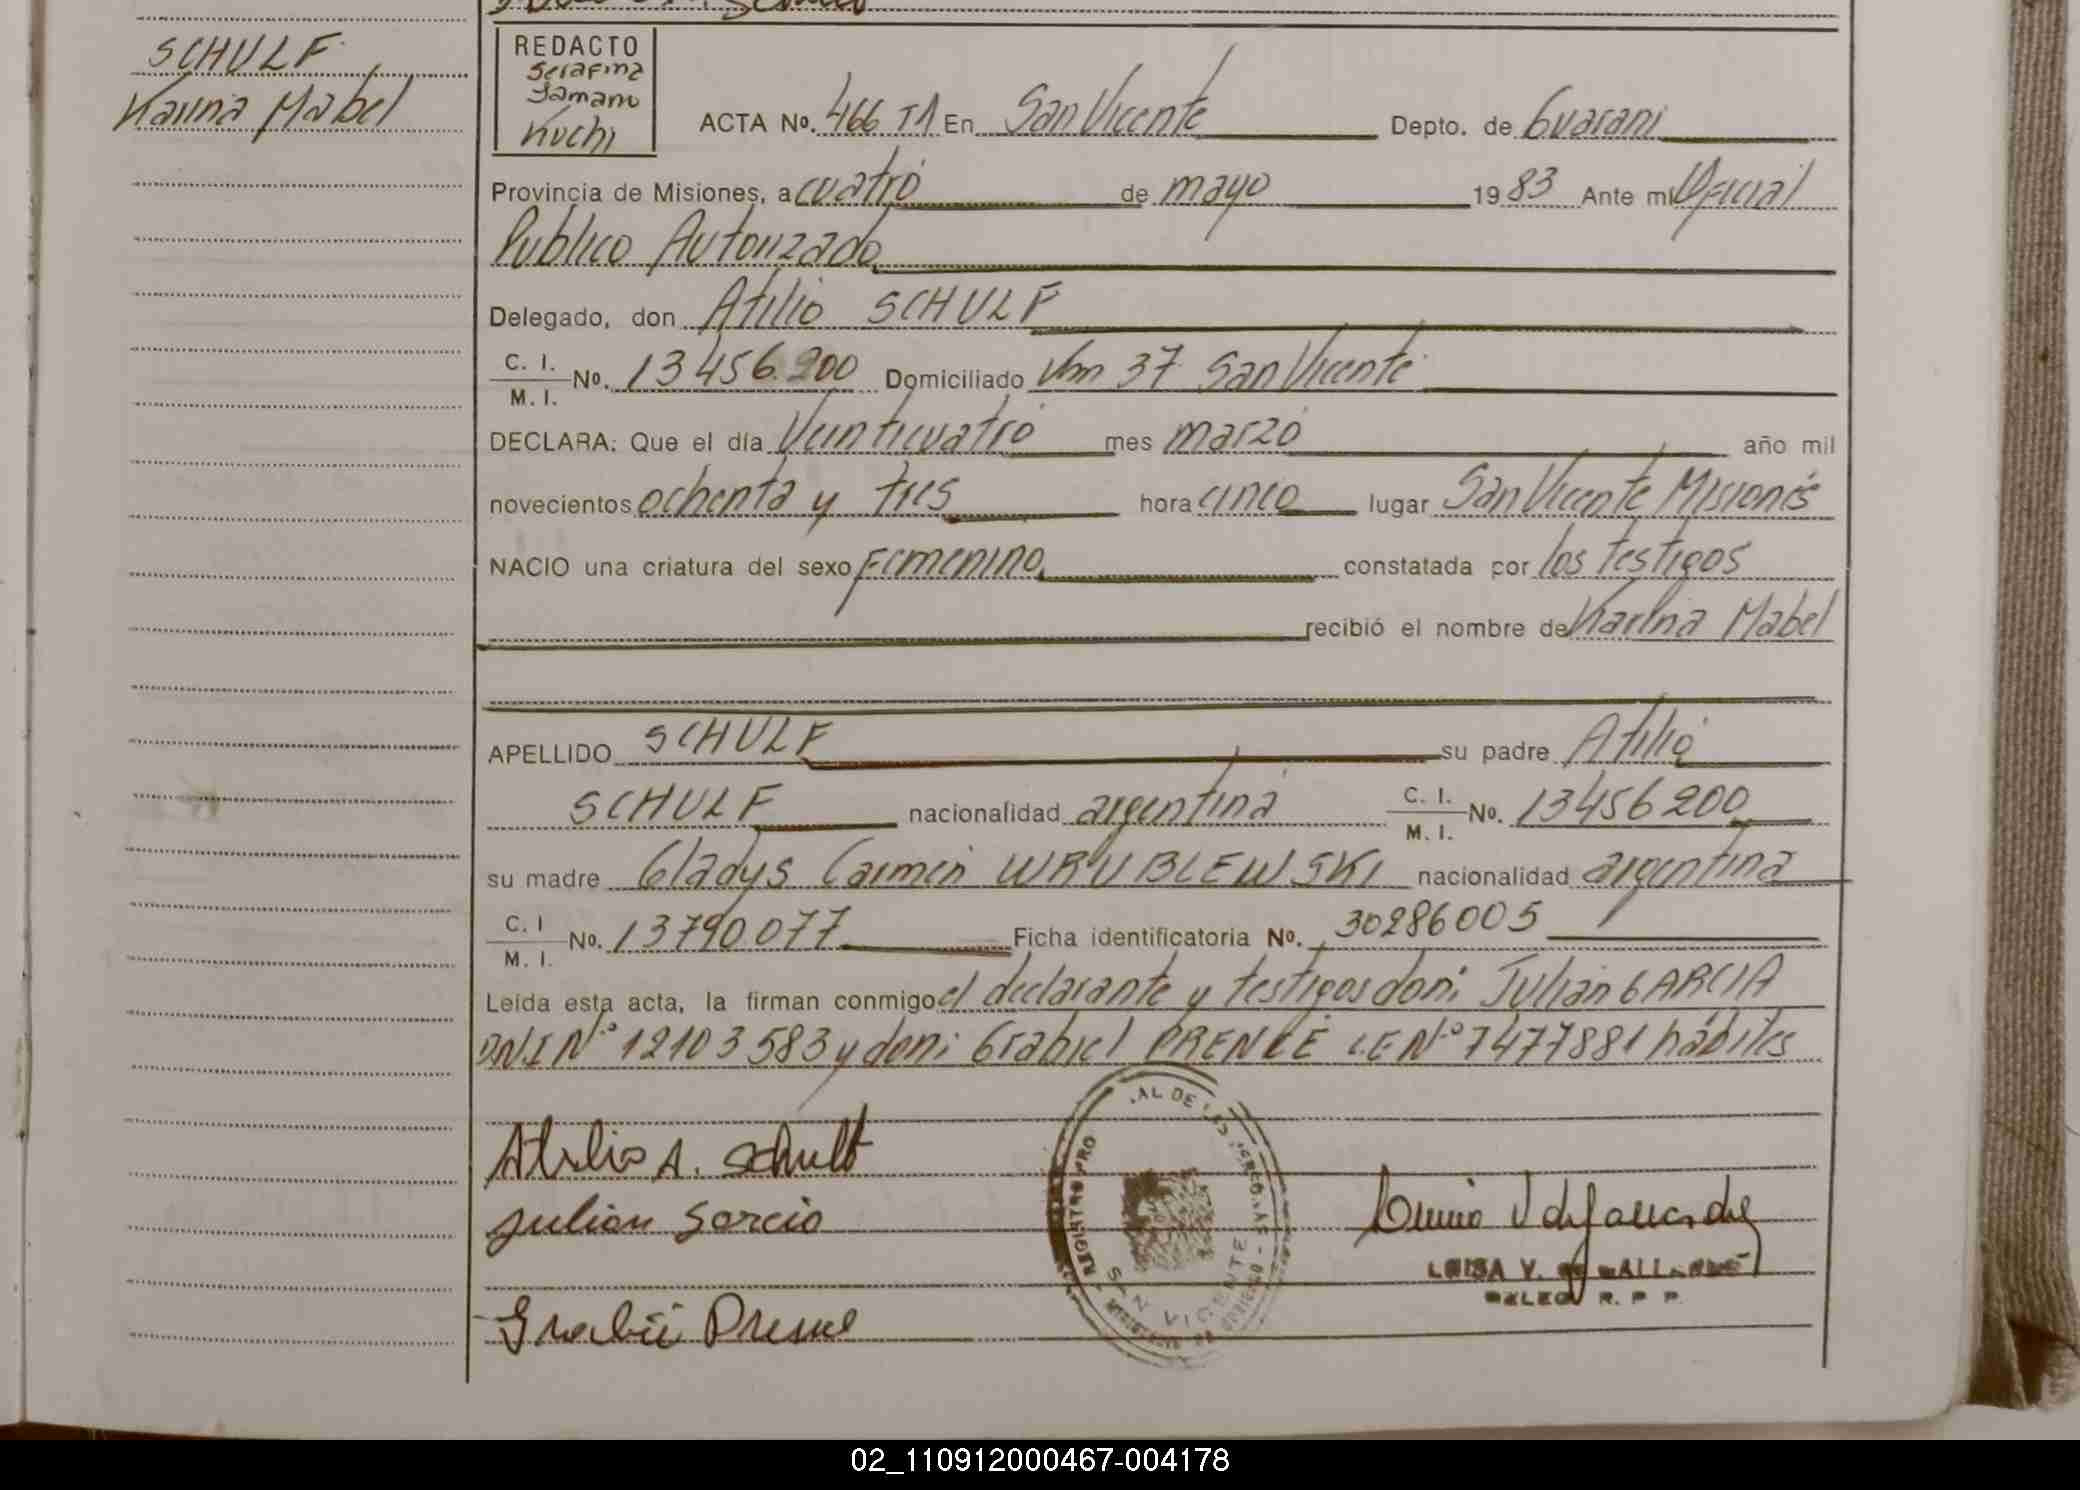 SCHULF
Karina Mabel
REDACTO
Serafina
Tamano
Kuchi
ACTA Nº. 466 T1 En San Vicente Depto. de Guarani
Provincia de Misiones, a cuatro de mayo 1983 Ante mi Oficial
Publico Autorizado
Delegado, don Atilio SCHULF
C. I.
M. I. Nº. 13456.200 Domiciliado Km 37 San Vicente
DECLARA: Que el día Veinticuatro mes marzo año mil
novecientos ochenta y tres hora cinco lugar San Vicente Misiones
NACIO una criatura del sexo Femenino constatada por los testigos
recibió el nombre de Karina Mabel
APELLIDO SCHULF su padre Atilio
SCHULF nacionalidad argentina C. I.
M. I. Nº. 13456200
su madre Gladys Carmen WRUBLEWSKI nacionalidad argentina
C. I
M. I. Nº. 13790077 Ficha identificatoria Nº. 30286005
Leída esta acta, la firman conmigo el declarante y testigos don: Julián GARCIA
DNI Nº 12103583 y don: Grabiel PRENCE LE Nº 7477881 hábiles
Atilio A. Schulf
Julian Garcia
REGISTRO PRO AL DE LAS PERSONAS
SAN VICENTE
LUISA V.
R. P. P.
02_110912000467-004178